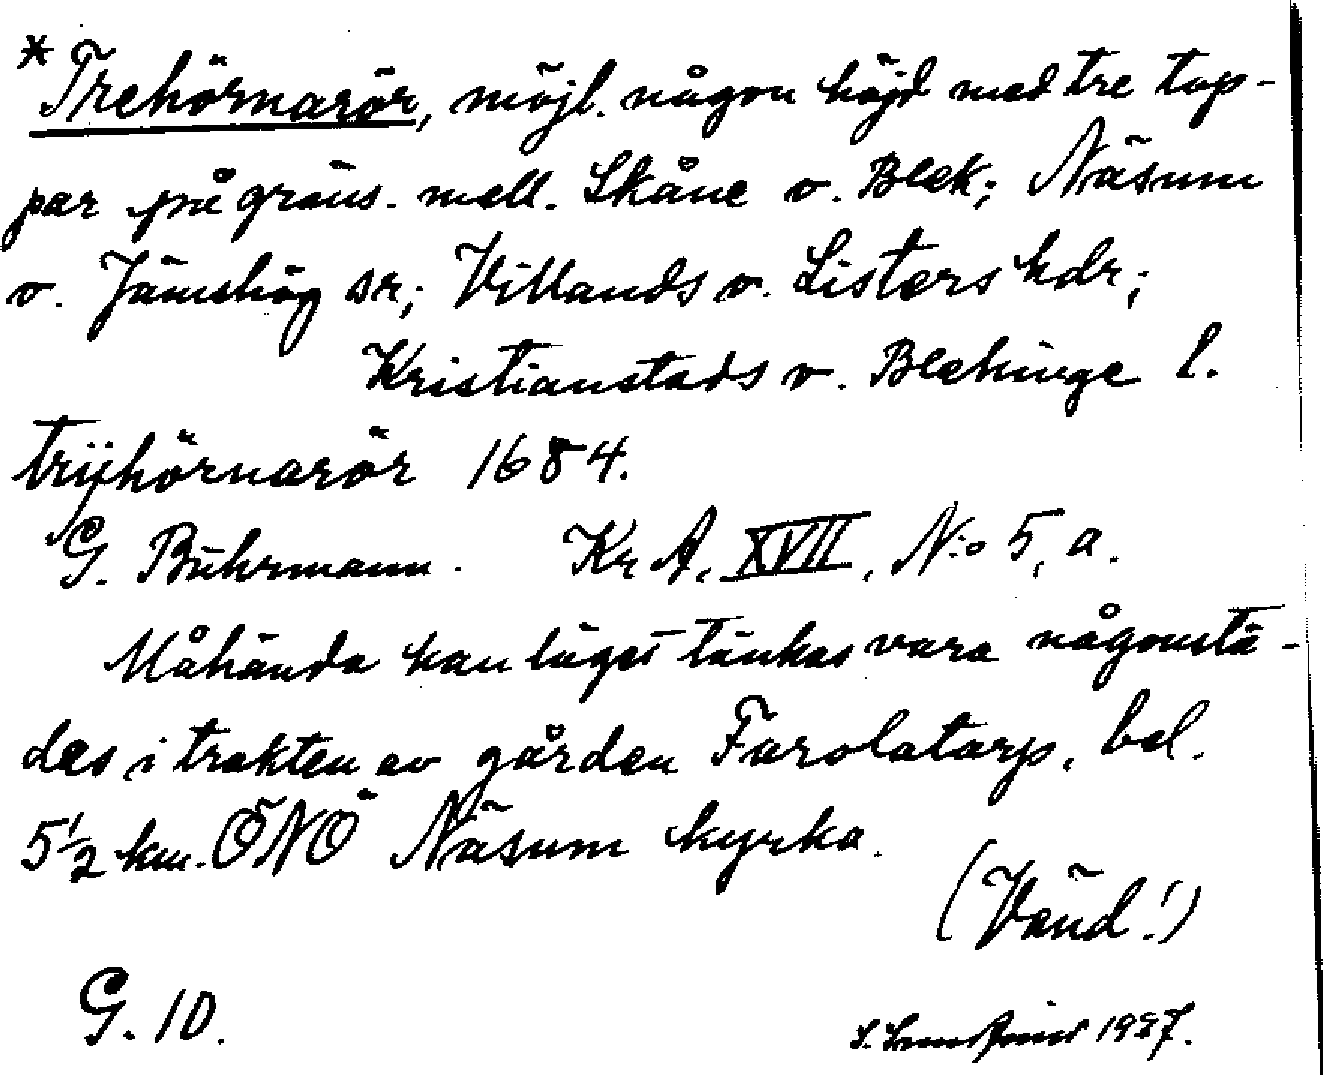 * Trehörnarör, möjl. någon höjd med tre top-
par på gräns. mell. Skåne o. Blek; Näsum
o. Jämshög sr; Villands o. Listers hdr;
Kristianstads o. Blekinge l.
trijhörnarör 1684.
G. Buhrmann. Kr A, XVII, N:o 5, a.
Måhända kan läget tänkas vara någonstä-
des i trakten av gården Farolatarp, bel.
5 1/2 km. ÖNÖ Näsum kyrka.
(Vänd!)
G. 10.
S. 1937.